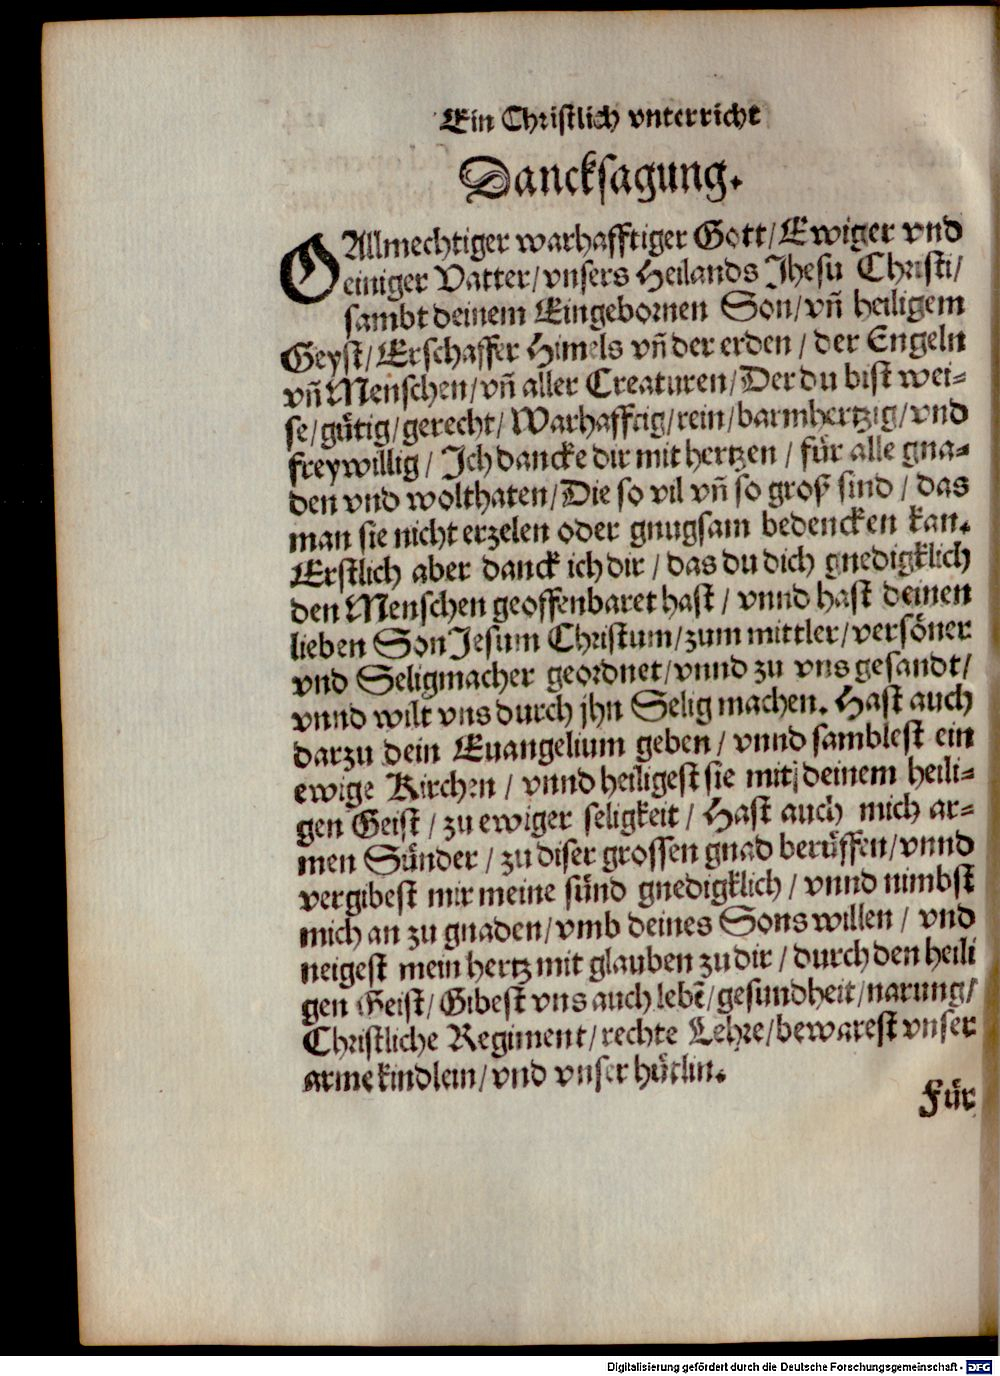 Ein Christlich vnterricht
Dancksagung.
O Allmechtiger warhafftiger Gott/ Ewiger vnd
einiger Vatter/ vnsers Heilands Jhesu Christi/
sambt deinem Eingebornen Son/ vñ heiligem
Geyst/ Erschaffer Himels vñ der erden / der Engeln
vñ Menschen/ vñ aller Creaturen/ Der du bist wei-
se/ gütig/ gerecht/ Warhafftig/ rein/ barmhertzig/ vnd
freywillig / Ich dancke dir mit hertzen / für alle gna-
den vnd wolthaten/ Die so vil vñ so groß sind / das
man sie nicht erzelen oder gnugsam bedencken kan.
Erstlich aber danck ich dir / das du dich gnedigklich
den Menschen geoffenbaret hast / vnnd hast deinen
lieben Son Jesum Christum/ zum mittler/ versöner
vnd Seligmacher geordnet/ vnnd zu vns gesandt/
vnnd wilt vns durch jhn Selig machen. Hast auch
darzu dein Euangelium geben / vnnd samblest ein
ewige Kirchen / vnnd heiligest sie mit deinem heili-
gen Geist / zu ewiger seligkeit / Hast auch mich ar-
men Sünder / zu diser grossen gnad berüffen/ vnnd
vergibest mir meine sünd gnedigklich / vnnd nimbst
mich an zu gnaden/ vmb deines Sons willen / vnd
neigest mein hertz mit glauben zu dir / durch den heili
gen Geist/ Gibest vns auch lebē/ gesundheit/ narung/
Christliche Regiment/ rechte Lehre/ bewarest vnser
arme kindlein/ vnd vnser hütlin.
Für
Digitalisierung gefördert durch die Deutsche Forschungsgemeinschaft - DFG